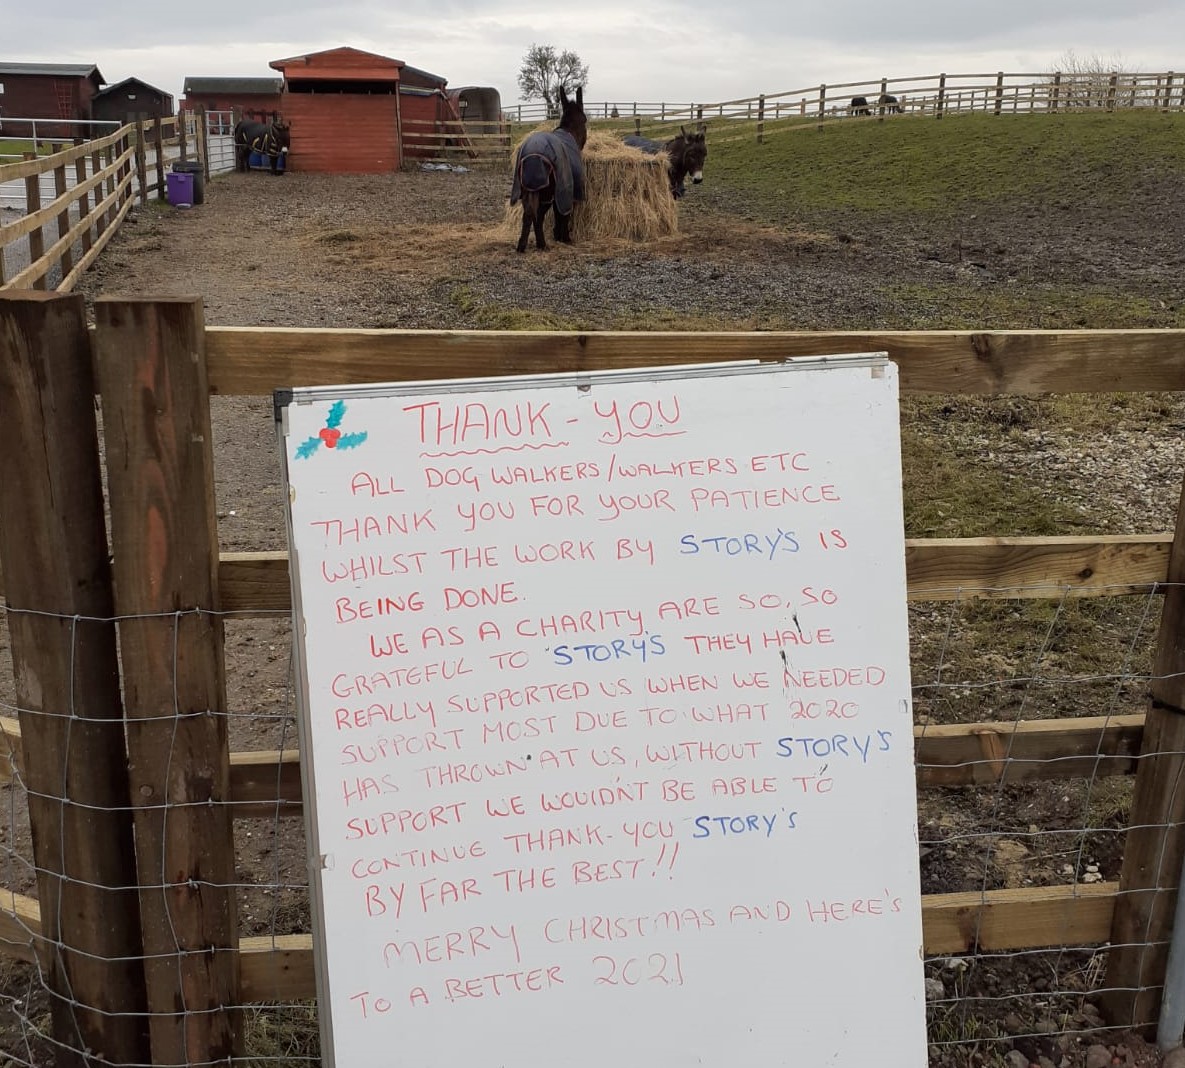 THANK-YOU
ALL DOG WALKERS/WALKERS ETC
THANK YOU FOR YOUR PATIENCE
WHILST THE WORK BY STORY'S IS
BEING DONE.
WE AS A CHARITY ARE SO, SO
GRATEFUL TO STORY'S THEY HAVE
REALLY SUPPORTED US WHEN WE NEEDED
SUPPORT MOST DUE TO WHAT 2020
HAS THROWN AT US, WITHOUT STORY'S
SUPPORT WE WOULDN'T BE ABLE TO
CONTINUE THANK-YOU STORY'S
BY FAR THE BEST!!
MERRY CHRISTMAS AND HERE'S
TO A BETTER 2021